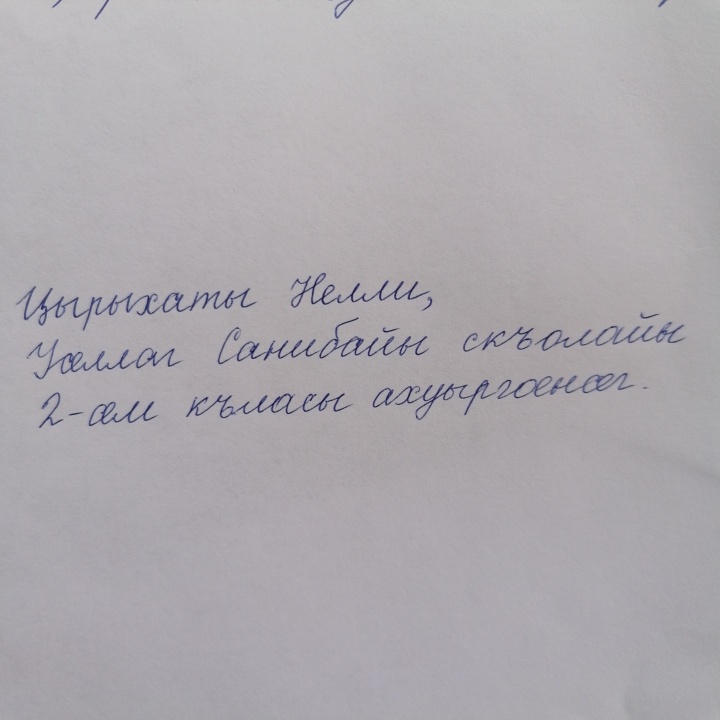 Цырыхаты Нелли,
Уӕллаг Санибайы скъолайы
2-ӕм къласы ахуыргӕнӕг.